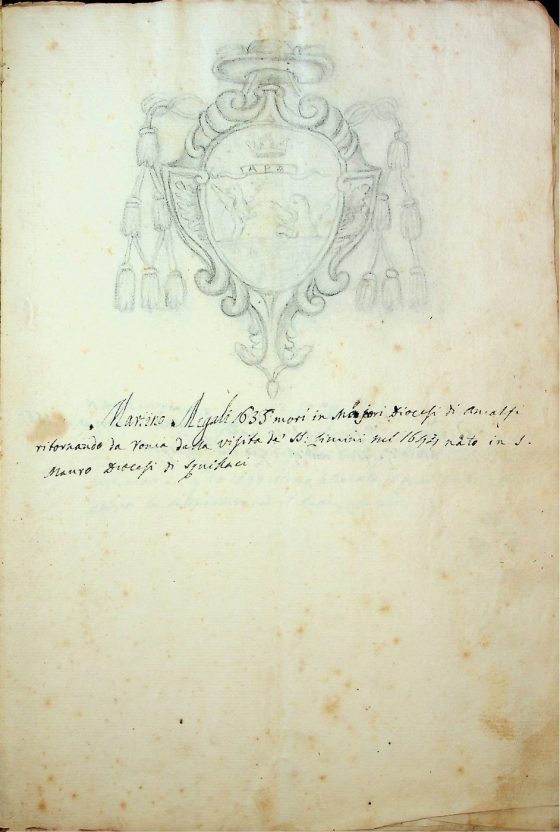 Martino Megali 1635 mori in Majori Diocesi di Amalfi
ritornando da roma dalla visita de' SS. Limini nel nato in S.
Mauro Diocesi di Squillaci